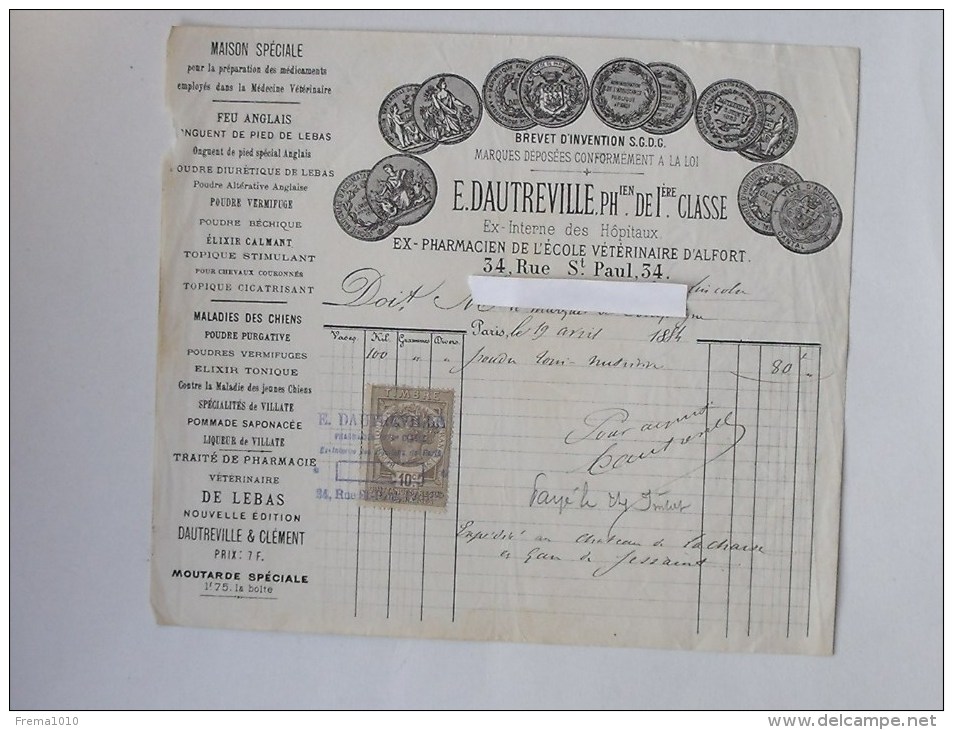 MAISON SPÉCIALE
pour la préparation des médicaments
employés dans la Médecine Vétérinaire
FEU ANGLAIS
NGUENT DE PIED DE LEBAS
Onguent de pied spécial Anglais
OUDRE DIURÉTIQUE DE LEBAS
Poudre Altérative Anglaise
POUDRE VERMIFUGE
POUDRE BÉCHIQUE
ÉLIXIR CALMANT
TOPIQUE STIMULANT
POUR CHEVAUX COURONNÉS
TOPIQUE CICATRISANT
MALADIES DES CHIENS
POUDRE PURGATIVE
POUDRES VERMIFUGES
ELIXIR TONIQUE
Contre la Maladie des jeunes Chiens
SPÉCIALITÉS DE VILLATE
POMMADE SAPONACÉE
LIQUEUR DE VILLATE
TRAITÉ DE PHARMACIE
VÉTÉRINAIRE
DE LEBAS
NOUVELLE ÉDITION
DAUTREVILLE & CLÉMENT
PRIX: 7 F.
MOUTARDE SPÉCIALE
1f75. la boîte
BREVET D'INVENTION S.G.D.G.
MARQUES DÉPOSÉES CONFORMEMENT A LA LOI
E. DAUTREVILLE, PHIEN. DE 1ÈRE CLASSE
Ex-Interne des Hôpitaux.
EX-PHARMACIEN DE L'ÉCOLE VÉTÉRINAIRE D'ALFORT.
34, Rue St. Paul, 34.
Doit, M
Paris, le 19 avril 1884
Vases Kil. Grammes Divers
100 " " poudre toni-nutritive 80 f "
TIMBRE
E. DAUTREVILLE
10c
34, Rue St-Paul
Pour acquit
Dautreville
Payé le
Expédié au chateau de Lachaise
en gare de Jessaint
Frema1010
http://www.delcampe.net